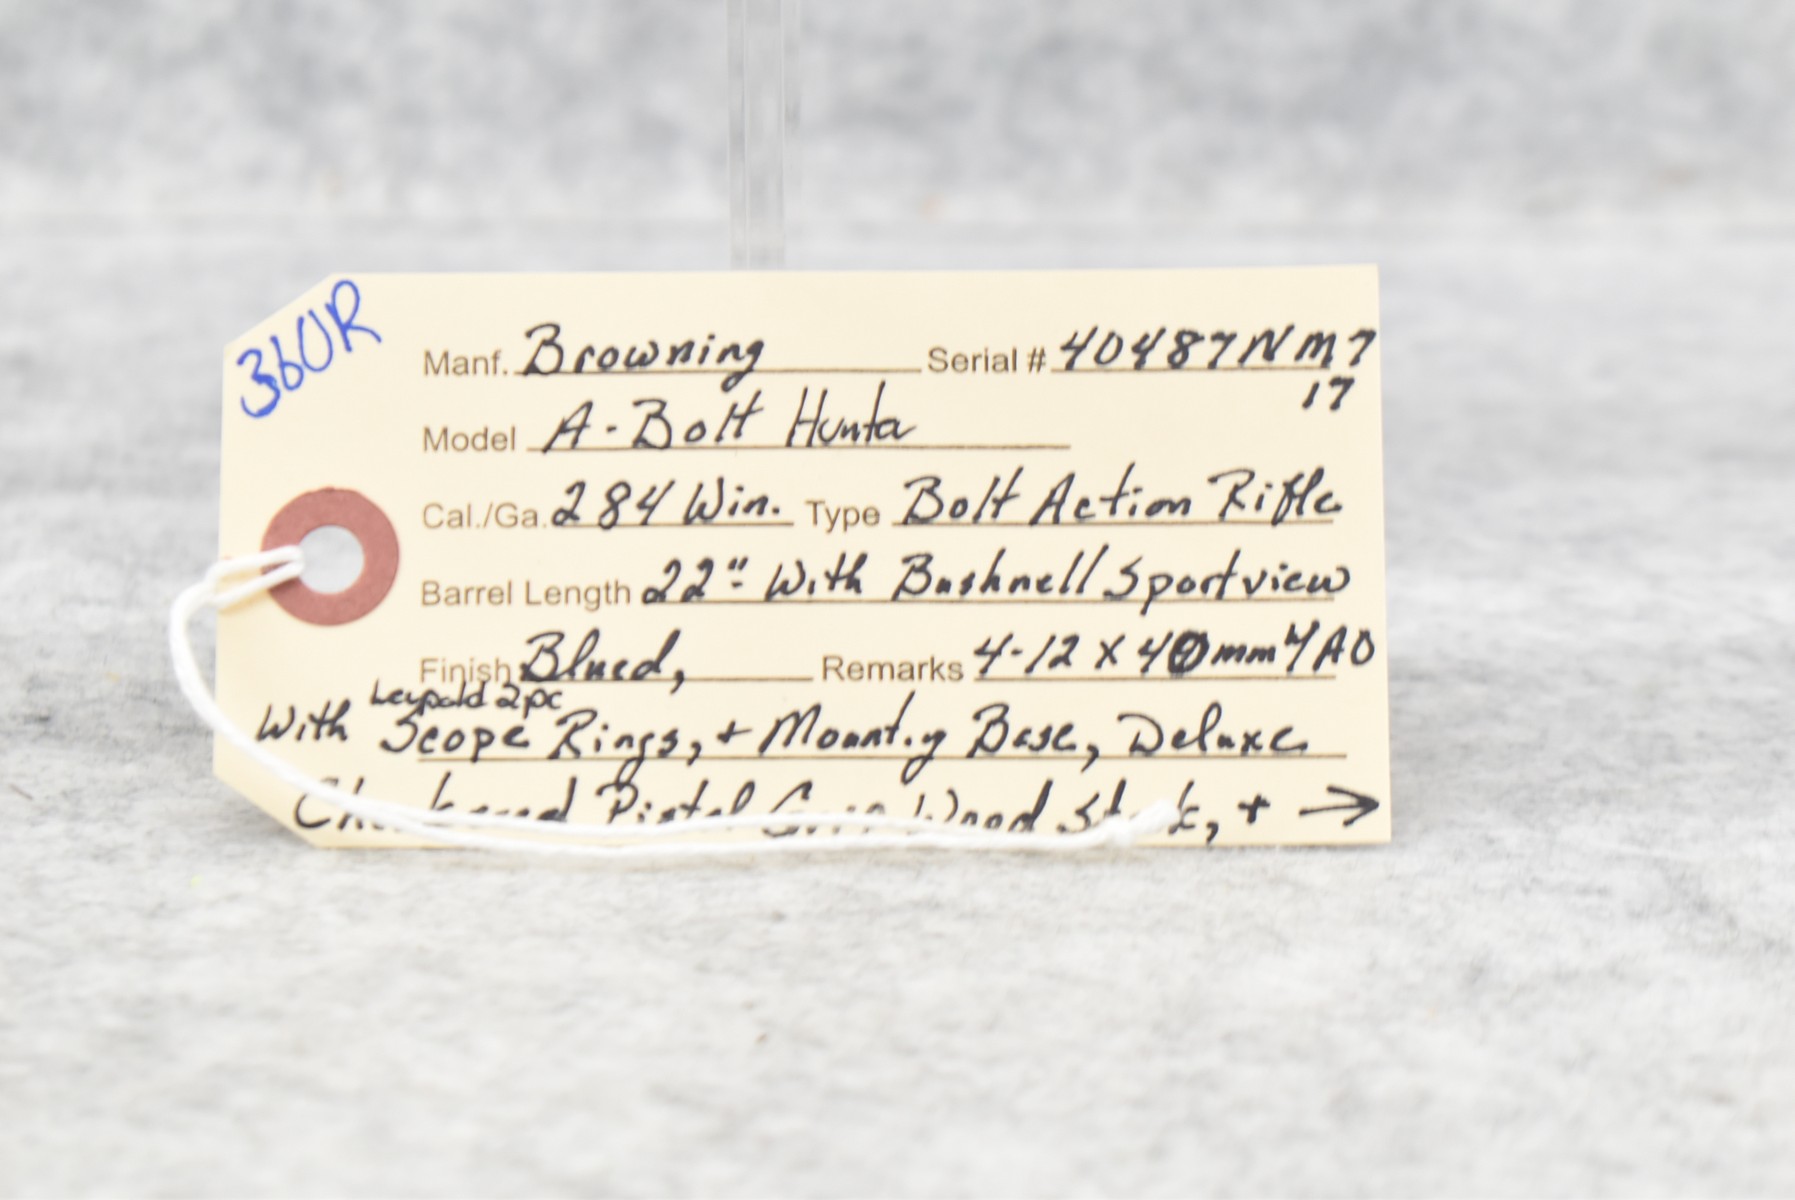 36UR
Manf. Browning Serial # 40487NM7
17
Model A-Bolt Hunter
Cal./Ga. 284 Win. Type Bolt Action Rifle
Barrel Length 22" With Bushnell Sportview
Finish Blued, Remarks 4-12 x 40mm W/AO
Leupold 2pc
With Scope Rings, + Mounting Base, Deluxe
Checkered Pistol Grip Wood Stock, + →